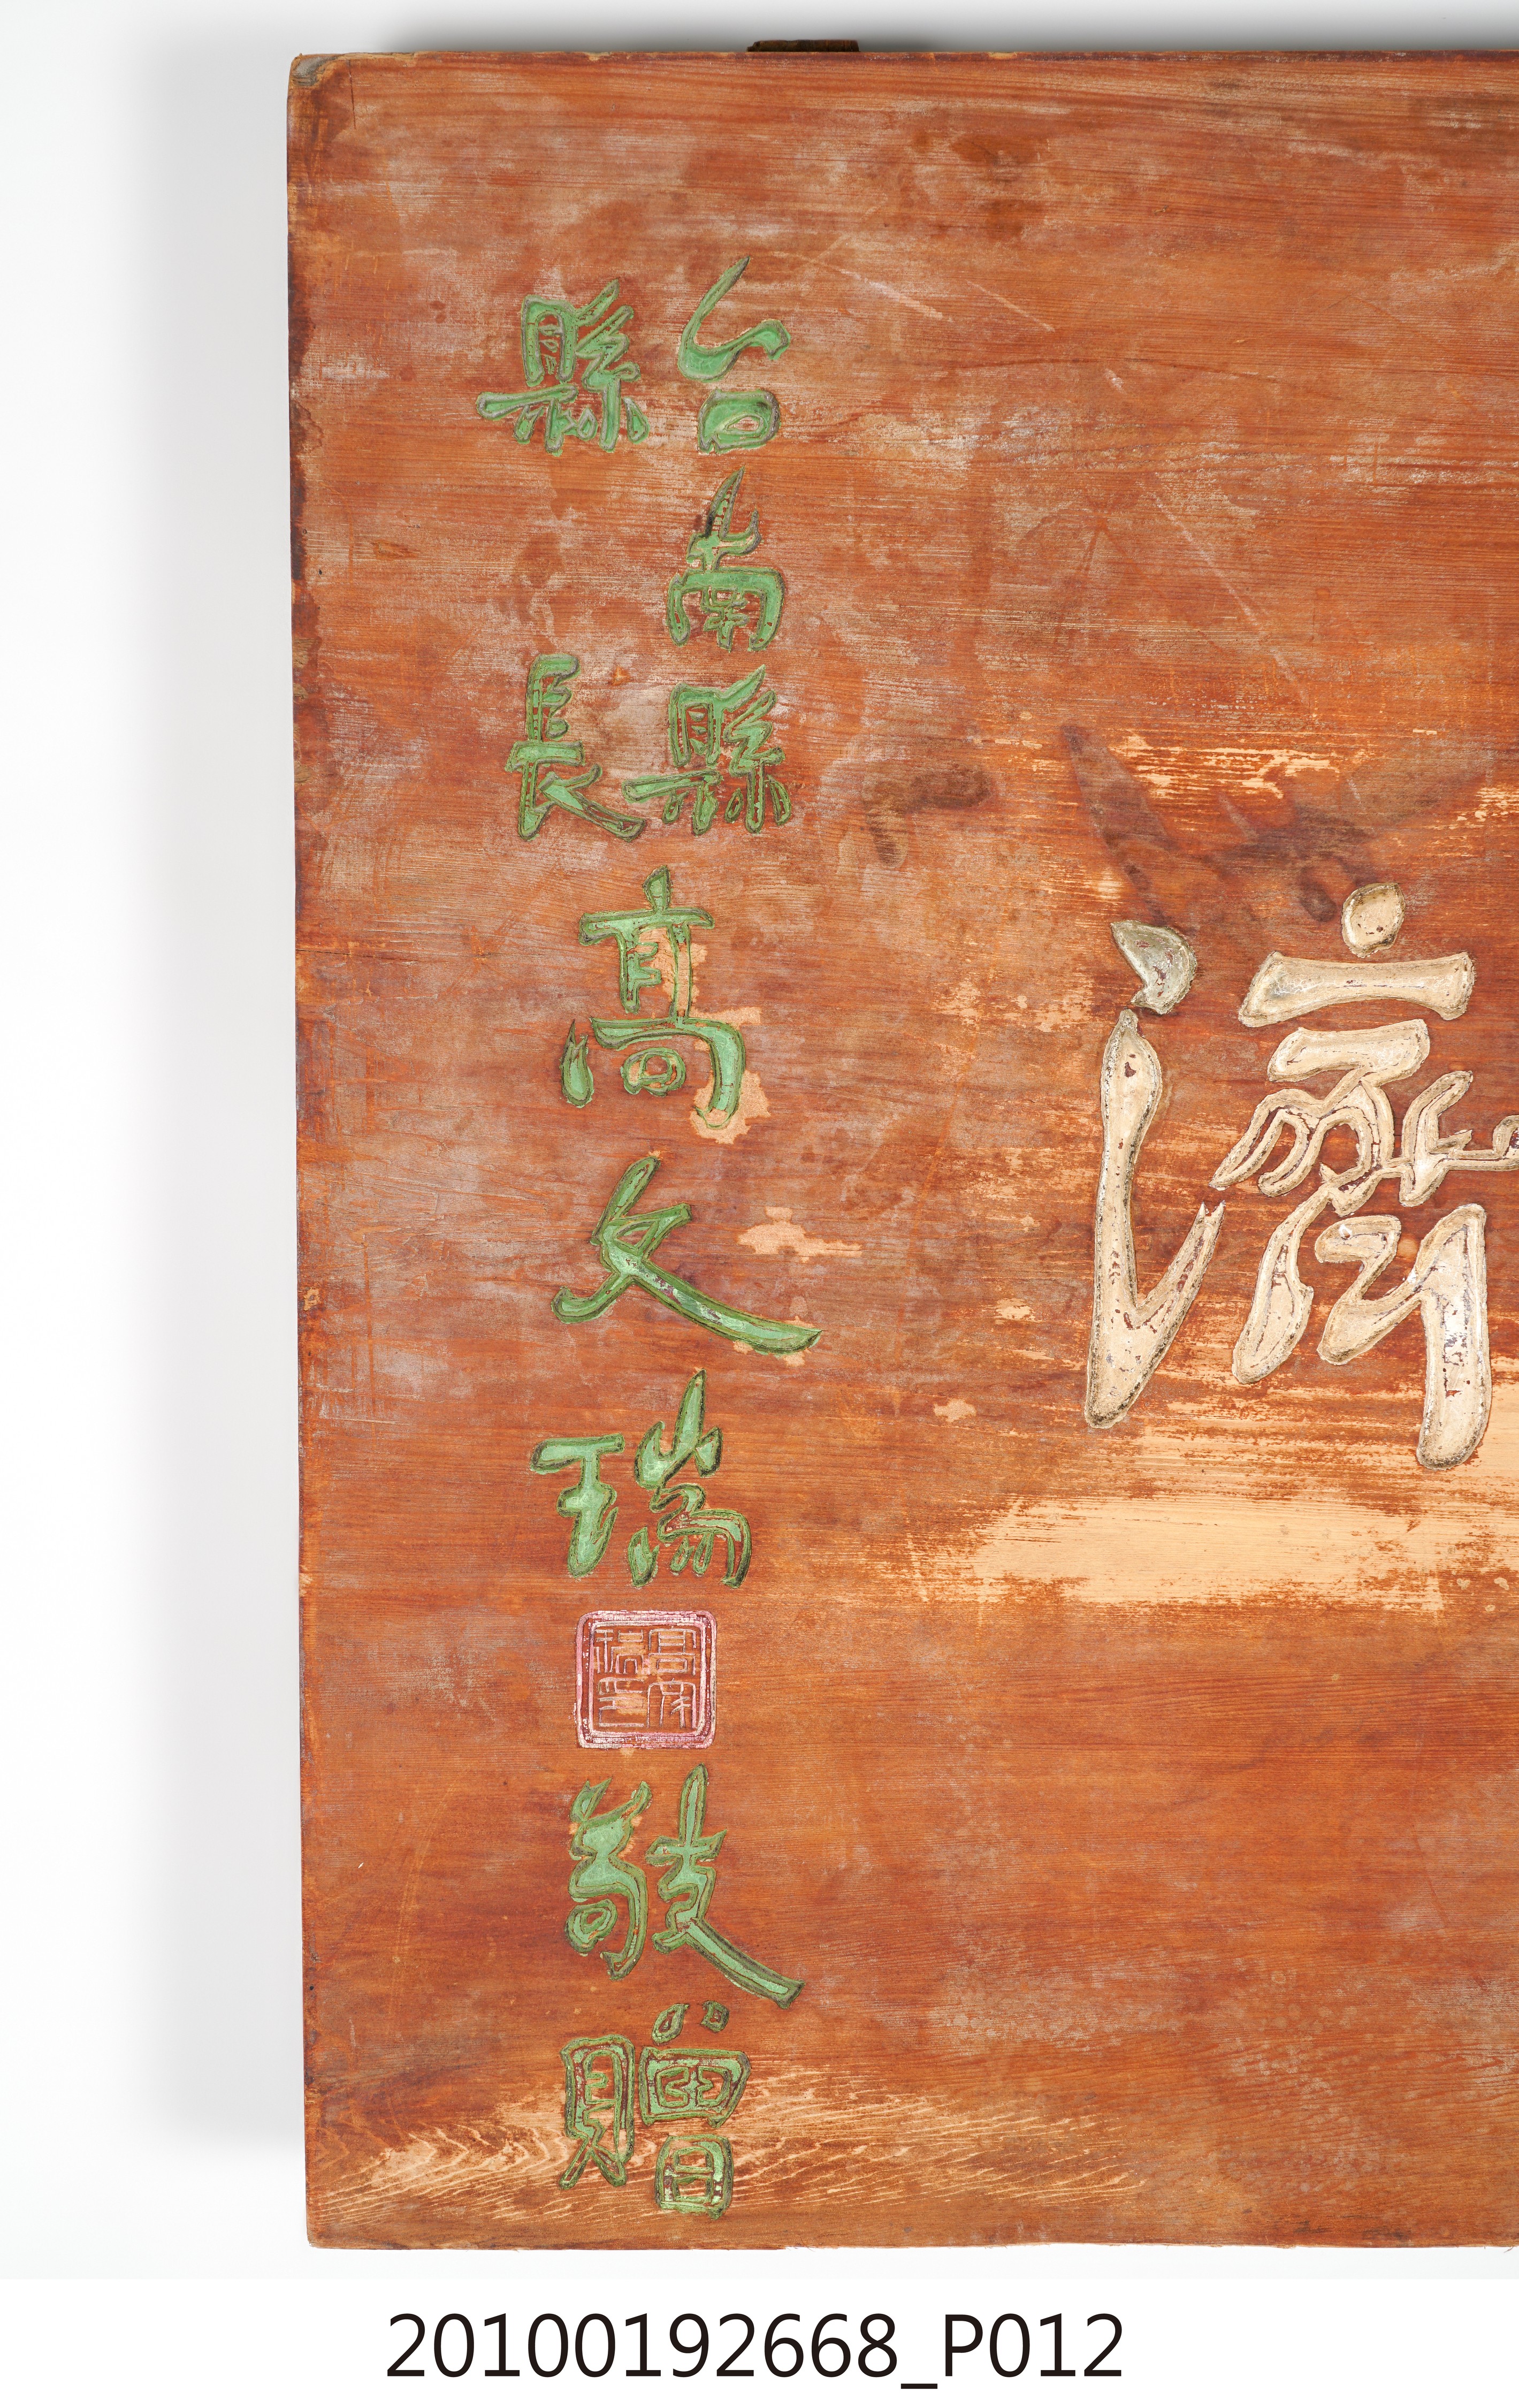 濟
台南縣
縣長
高文瑞
高文
瑞印
敬贈
20100192668_P012